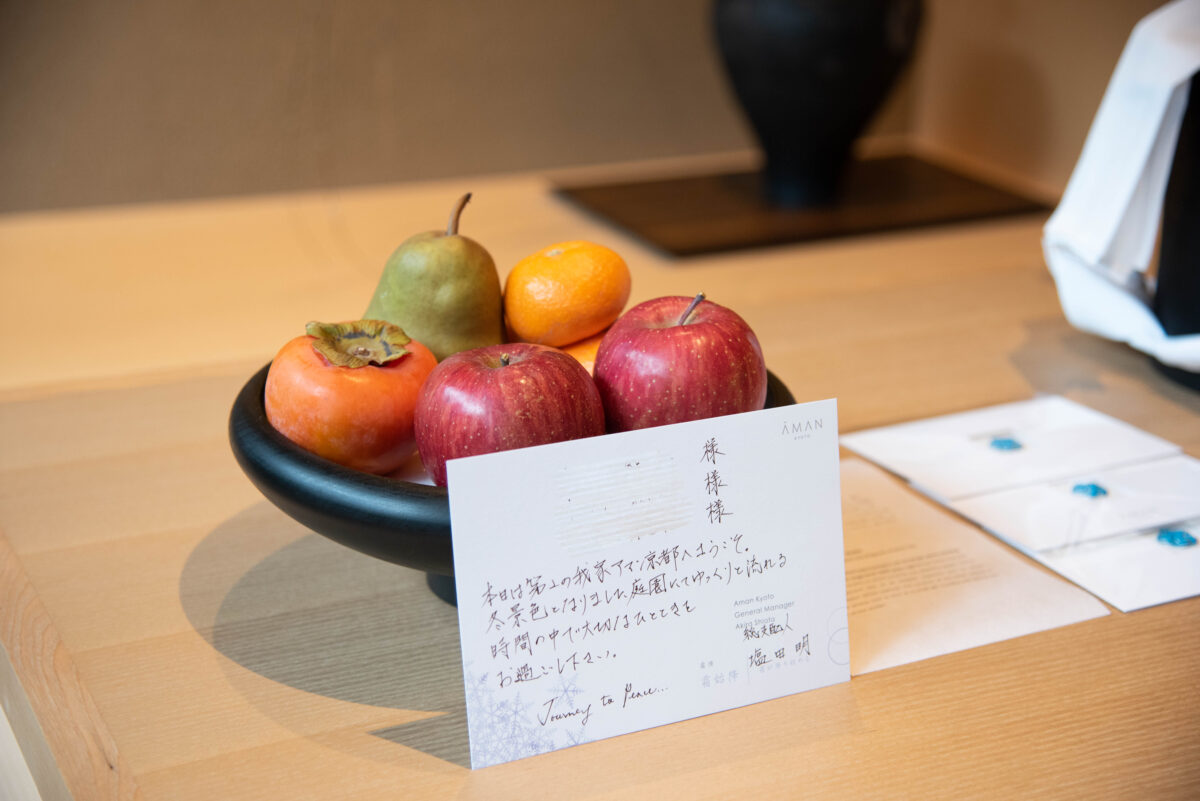 AMAN
KYOTO
様
様
様
本日は第二の我家アマン京都へようこそ。
冬景色となりました庭園にてゆっくりと流れる
時間の中で大切なひとときを
お過ごし下さい。
Journey to Peace...
Aman Kyoto
General Manager
Akira Shiota
総支配人
塩田 明
霜始降